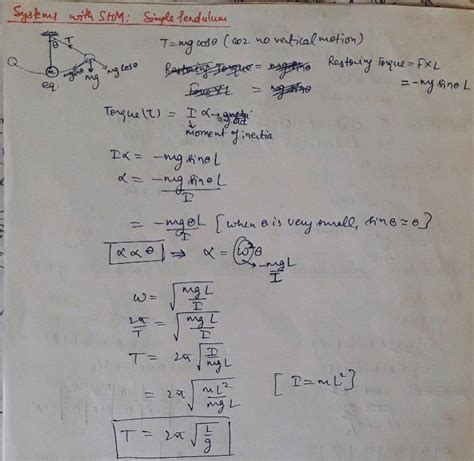 Systems with SHM: Simple Pendulum
T = mg cosθ (coz no vertical motion)
θ T
mg sinθ mg mg cosθ
eq.
Restoring Torque = mg sinθ Restoring Torque = F×L
Force×L = mg sinθ = -mg sinθL
Torque (τ) = I α → ang acc
moment of inertia
Iα = -mg sinθL
α = -mg sinθL / I
= -mgθL / I [when θ is very small, sinθ = θ]
α α θ ⇒ α = ω²θ
-mgL / I
ω = √(mgL / I)
2π / T = √(mgL / I)
T = 2π √(I / mgL)
= 2π √(mL² / mgL) [I = mL²]
T = 2π √(L / g)